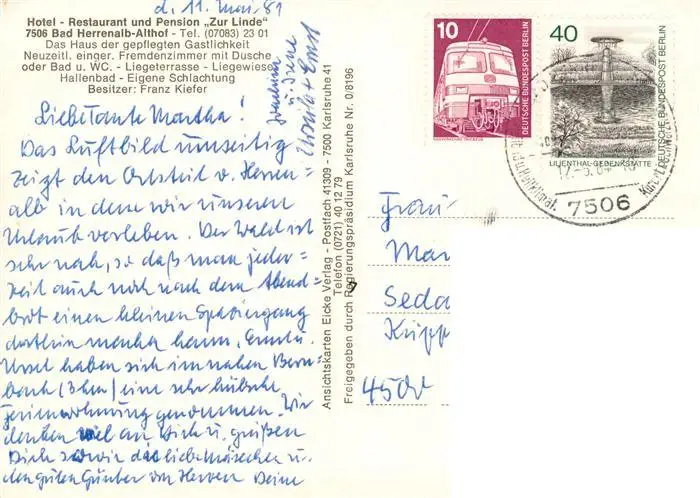 d. 11. Mai 81
Hotel - Restaurant und Pension „Zur Linde"
7506 Bad Herrenalb-Althof - Tel. (07083) 23 01
Das Haus der gepflegten Gastlichkeit
Neuzeitl. einger. Fremdenzimmer mit Dusche
oder Bad u. WC. - Liegeterrasse - Liegewiese
Hallenbad - Eigene Schlachtung
Besitzer: Franz Kiefer
Liebe Tante Martha!
Das Luftbild umseitig
zeigt den Ortsteil v. Herren-
alb in dem wir unseren
Urlaub verleben. Der Wald ist
sehr nah, so daß man jeder-
zeit auch noch nach dem Abend-
brot einen kleinen Spaziergang
dorthin machen kann. Ernst u.
Ursel haben sich im nahen Bern-
bach (3 km) eine sehr hübsche
Ferienwohnung genommen. Wir
denken viel an Dich u. grüßen
Dich sowie das liebe Mäuschen u.
den guten Günter von Herzen Deine
u. Irene
Ursula + Ernst
Ansichtskarten Eicke Verlag - Postfach 41309 - 7500 Karlsruhe 41
Telefon (0721) 40 12 79
Freigegeben durch Regierungspräsidium Karlsruhe Nr. 0/8196
10
DEUTSCHE BUNDESPOST BERLIN
40
DEUTSCHE BUNDESPOST BERLIN
LILIENTHAL-GEDENKSTÄTTE
7506
Frau
Mar
Seda
Kripp
4500